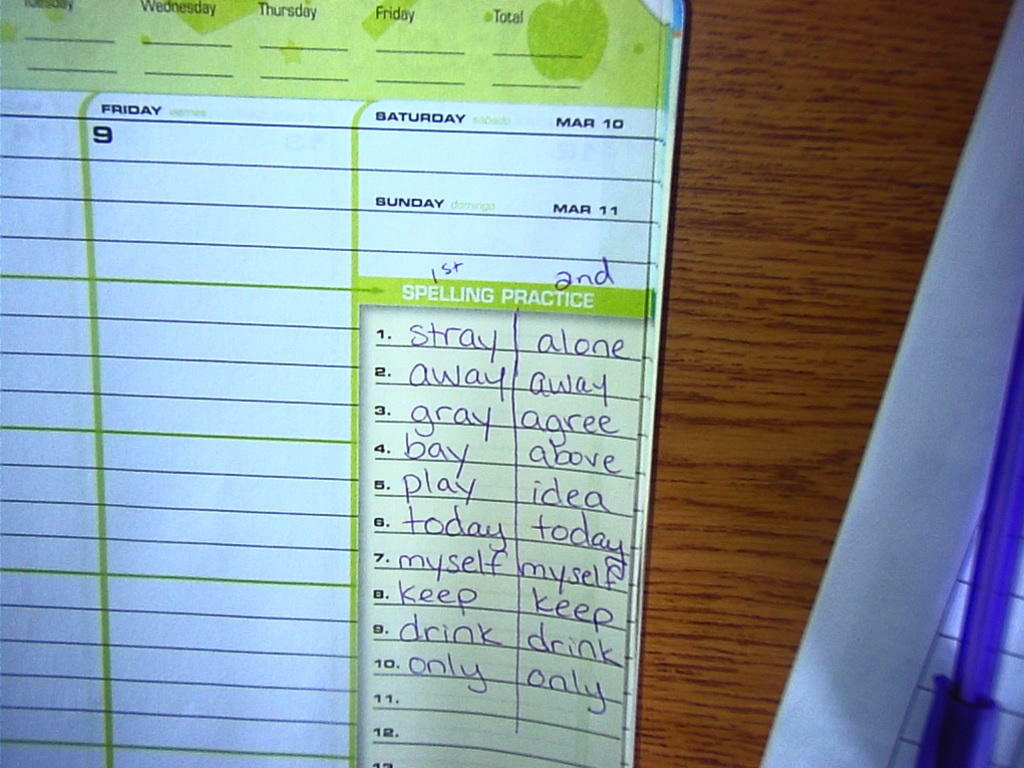 Tuesday Wednesday Thursday Friday Total
FRIDAY viernes
9
SATURDAY sábado MAR 10
SUNDAY domingo MAR 11
1st 2nd
SPELLING PRACTICE
1. stray alone
2. away away
3. gray agree
4. bay above
5. play idea
6. today today
7. myself myself
8. keep keep
9. drink drink
10. only only
11.
12.
13